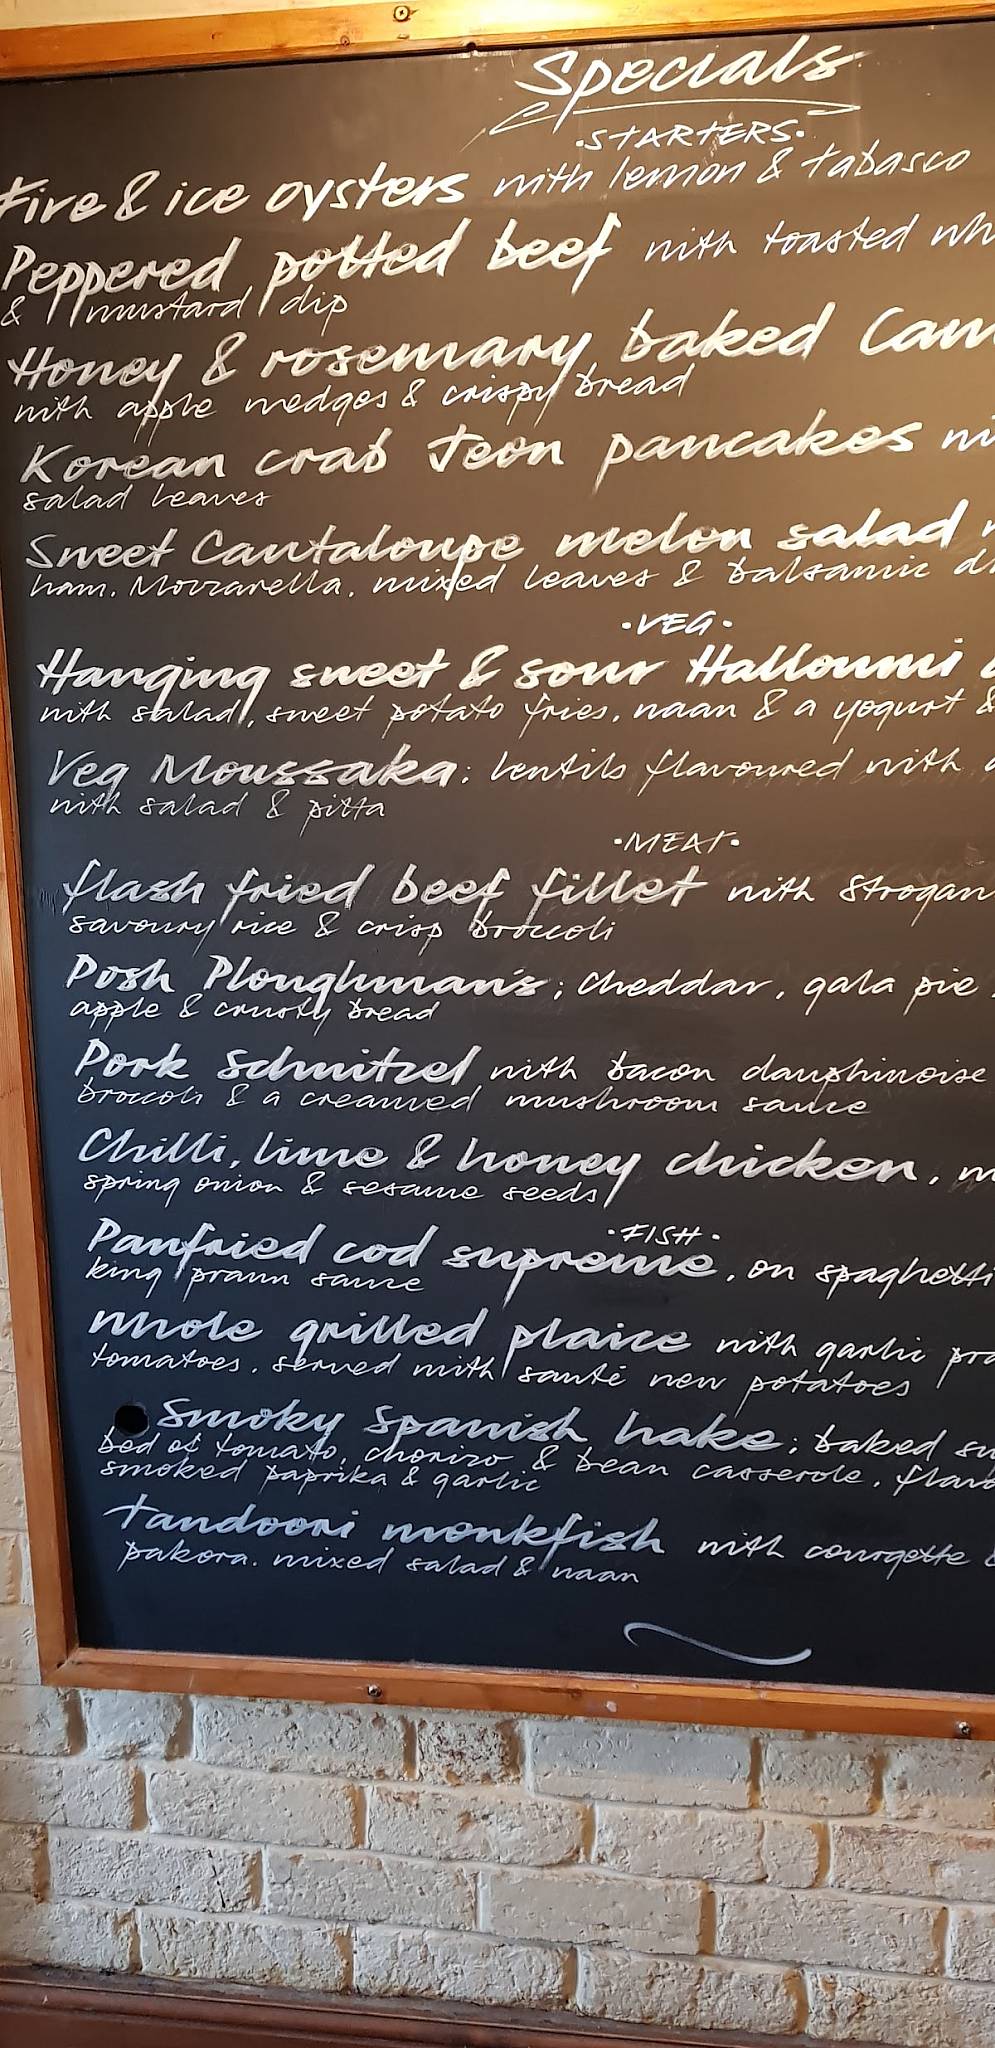 Specials
·STARTERS·
Fire & ice oysters with lemon & tabasco
Peppered potted beef with toasted
& mustard dip
Honey & rosemary baked
with apple wedges & crispy bread
Korean crab Jeon pancakes
salad leaves
Sweet Cantaloupe melon salad
ham, Mozzarella, mixed leaves & balsamic
·VEG·
Hanging sweet & sour Halloumi
with salad, sweet potato fries, naan & a yogurt &
Veg Moussaka; lentils flavoured with
with salad & pitta
·MEAT·
flash fried beef fillet with
savoury rice & crisp broccoli
Posh Ploughman's; cheddar, gala pie
apple & crusty bread
Pork Schnitzel with bacon dauphinoise
broccoli & a creamed mushroom sauce
Chilli, lime & honey chicken,
spring onion & sesame seeds
·FISH·
Panfried cod supreme, on spaghetti
king prawn sauce
Whole grilled plaice with garlic
tomatoes, served with sauté new potatoes
Smoky Spanish hake; baked
bed of tomato, chorizo & bean casserole,
smoked paprika & garlic
Tandoori monkfish with courgette
pakora, mixed salad & naan